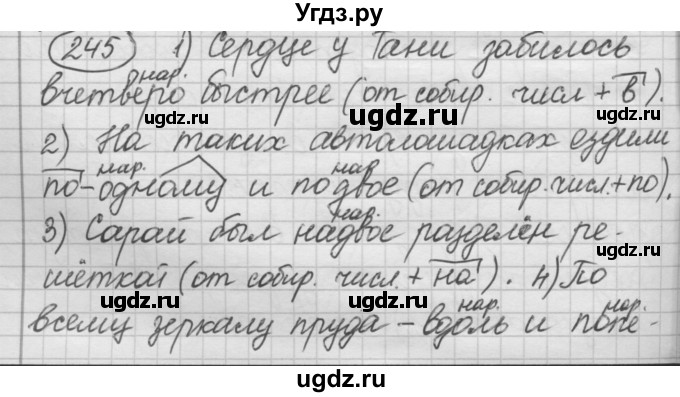 Угдз.ру
245 1) Сердце у Тани забилось
нар.
вчетверо быстрее (от собир. числ + в).
2) На таких автолошадках ездили
нар. нар.
по-одному и подвое (от собир. числ. + по).
нар.
3) Сарай был надвое разделён ре-
шёткой (от собир. числ. + на). 4) По
нар. нар.
всему зеркалу пруда – вдоль и попе-
ugdz.ru ugdz.ru ugdz.ru
ugdz.ru ugdz.ru
ugdz.ru ugdz.ru ugdz.ru
ugdz.ru ugdz.ru
ugdz.ru